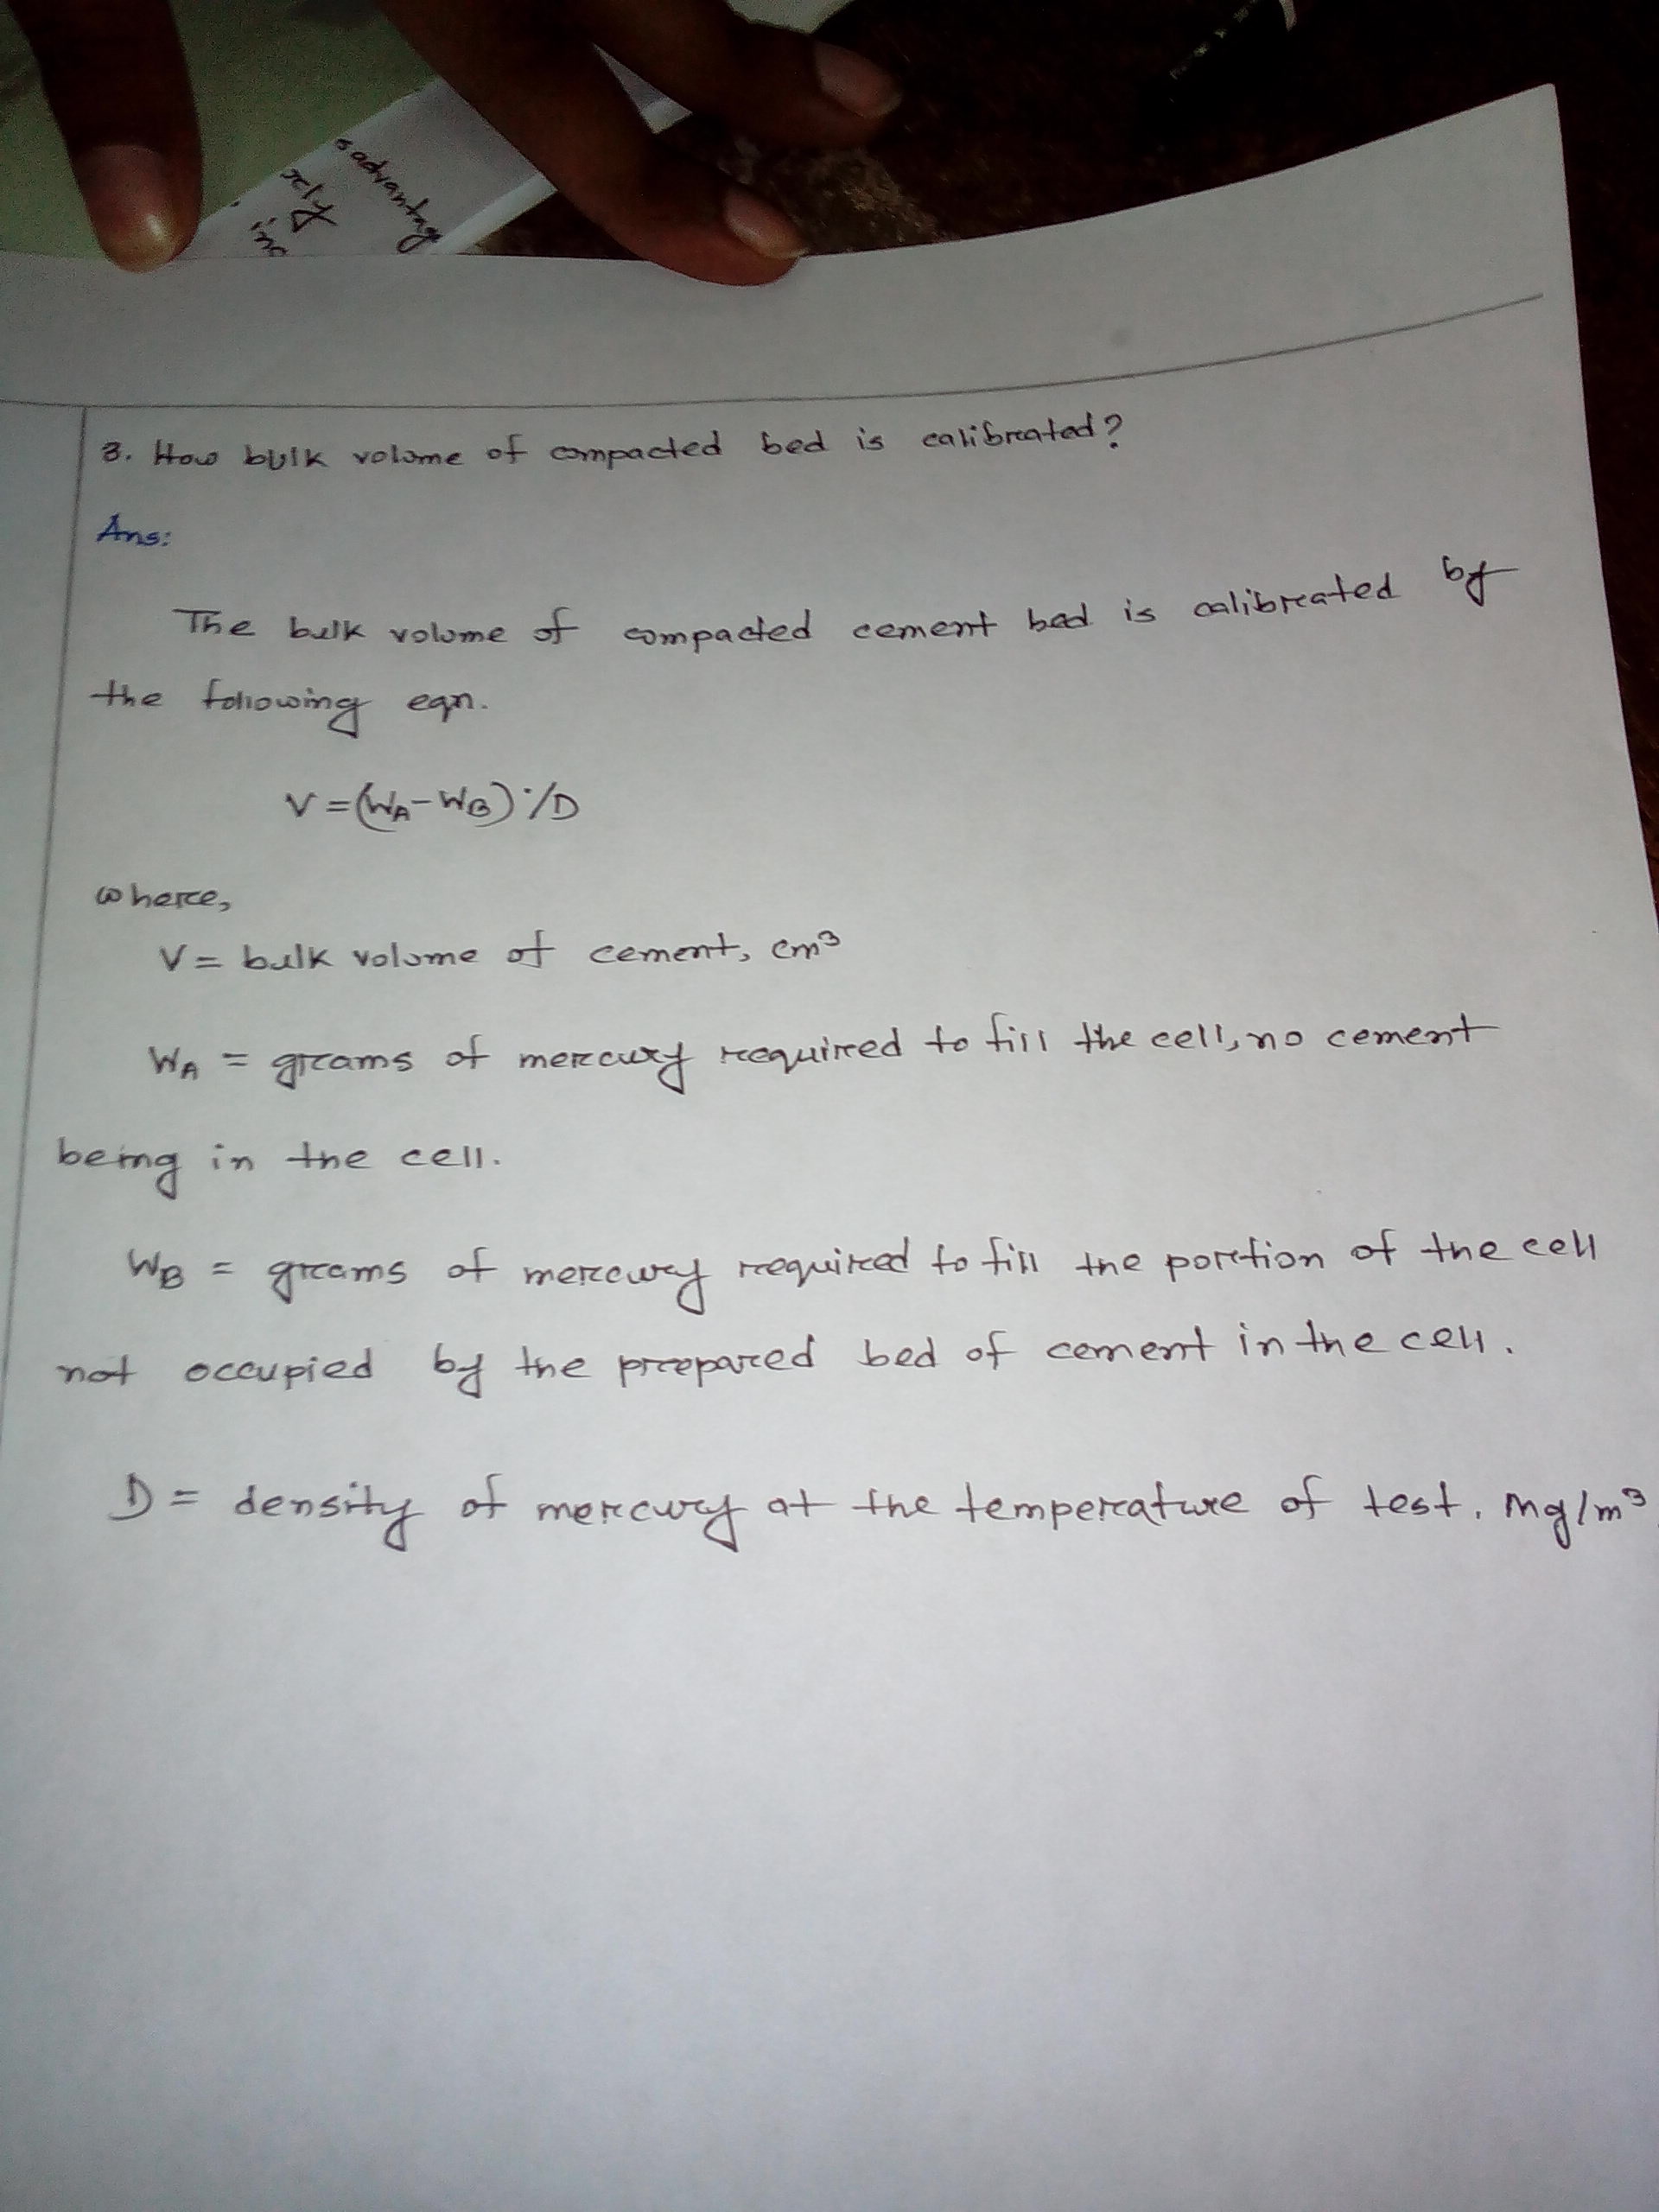 sadvantag
rely
inc
3. How bulk volume of compacted bed is calibrated?
Ans:
The bulk volume of compacted cement bed is calibrated by
the following eqn.
V=(W_A-W_B)/D
where,
V = bulk volume of cement, cm³
W_A = grams of mercury required to fill the cell, no cement
being in the cell.
W_B = grams of mercury required to fill the portion of the cell
not occupied by the prepared bed of cement in the cell.
D = density of mercury at the temperature of test, Mg/m³